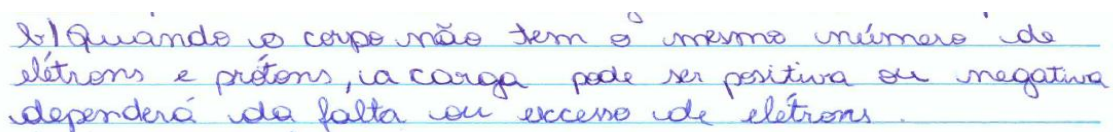 b) Quando o corpo não tem o mesmo número de
elétrons e prótons, a carga pode ser positiva ou negativa
dependerá da falta ou excesso de elétrons.